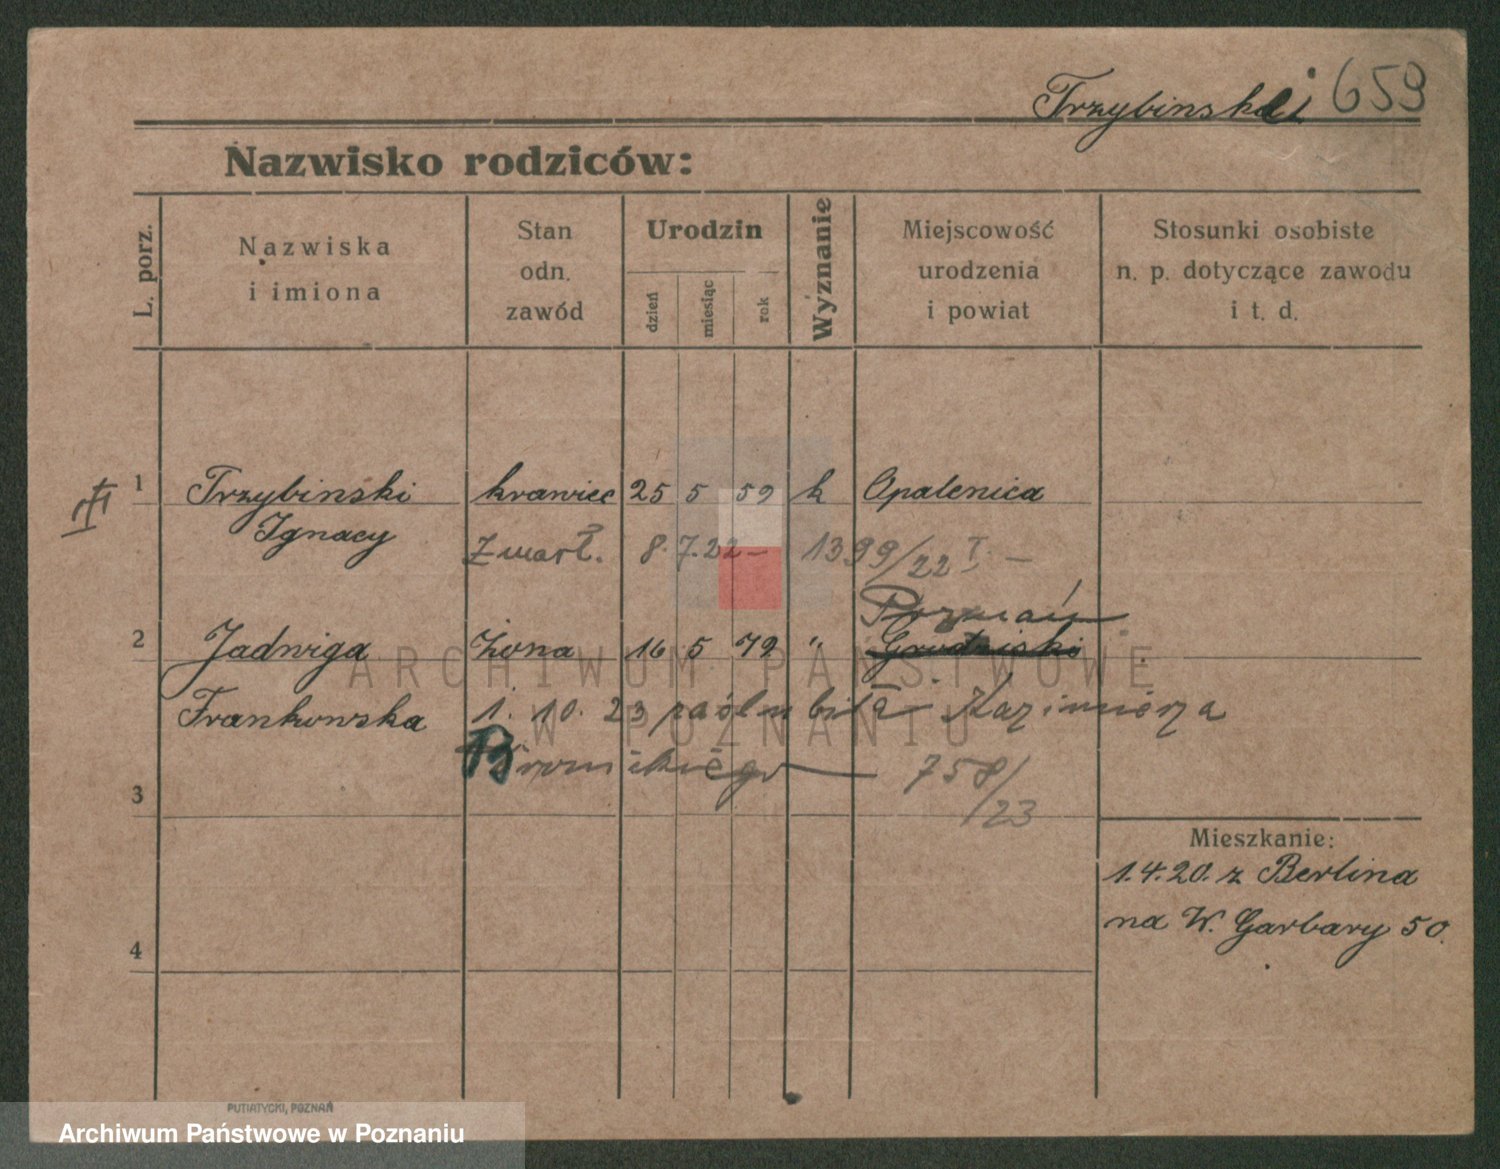 Trzybinski 659
Nazwisko rodziców:
L. porz.
Nazwiska
i imiona
Stan
odn.
zawód
Urodzin
dzień
miesiąc
rok
Wyznanie
Miejscowość
urodzenia
i powiat
Stosunki osobiste
n. p. dotyczące zawodu
i t. d.
1 Trzybinski krawiec 25 5 59 k Opalenica
Ignacy Zmarł. 8.7.22 — 1399/22 I. —
Poznań
2 Jadwiga żona 16 5 79 " Grodziski
Frankowska 1. 10. 23 poślubiła Kazimierza
758/23
3
Mieszkanie:
1.4.20. z Berlina
na W. Garbary 50.
4
ARCHIWUM PAŃSTWOWE
W POZNANIU
PUTIATYCKI, POZNAŃ
Archiwum Państwowe w Poznaniu